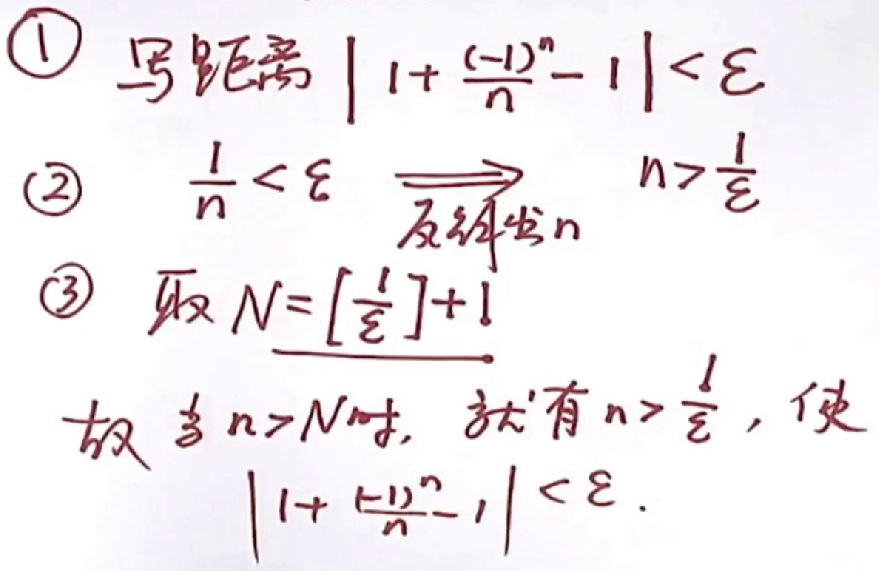 ① 写距离 |1+(-1)ⁿ/n-1|<ε
② 1/n<ε ⟹ n>1/ε
反解出n
③ 取 N=[1/ε]+1
故当n>N时, 就有n>1/ε, 使
|1+(-1)ⁿ/n-1|<ε.